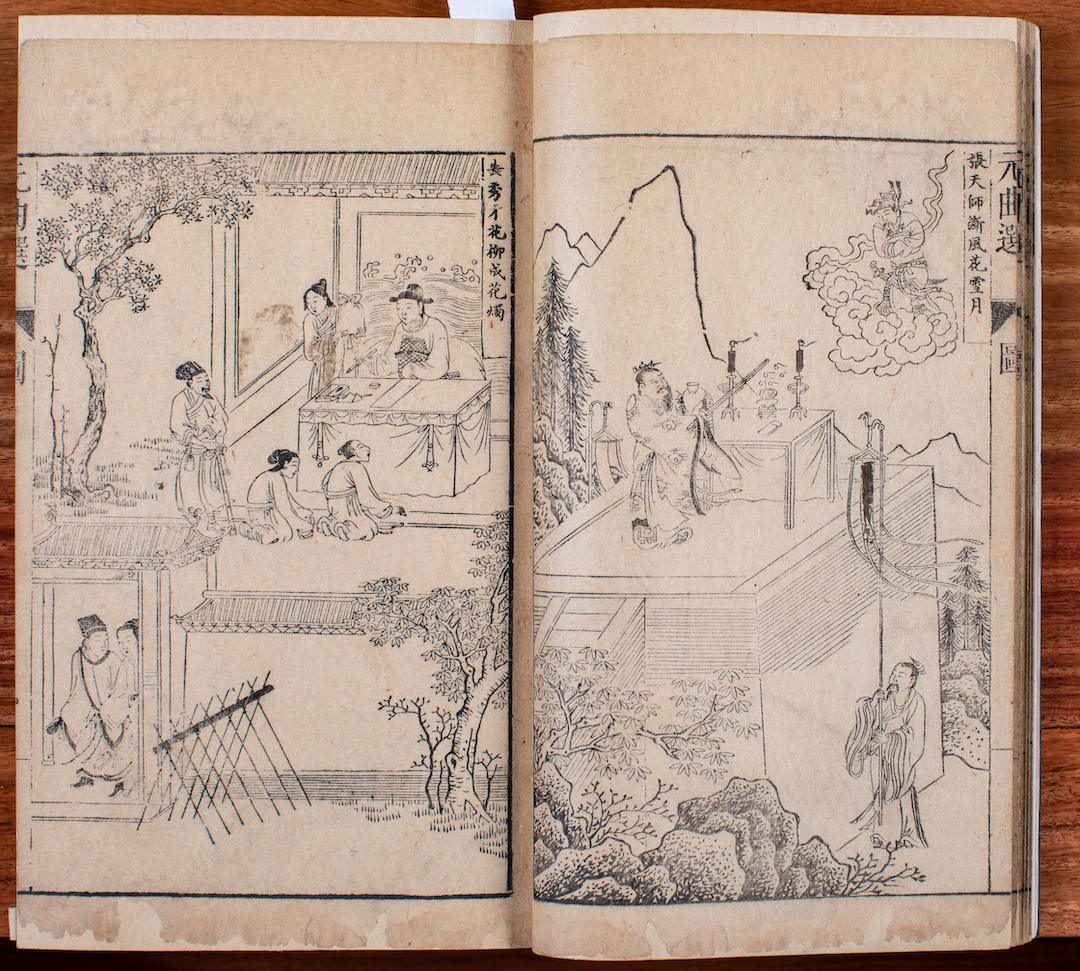 元曲選
圖
張天師斷風花雪月
安秀才花柳成花燭
元曲選